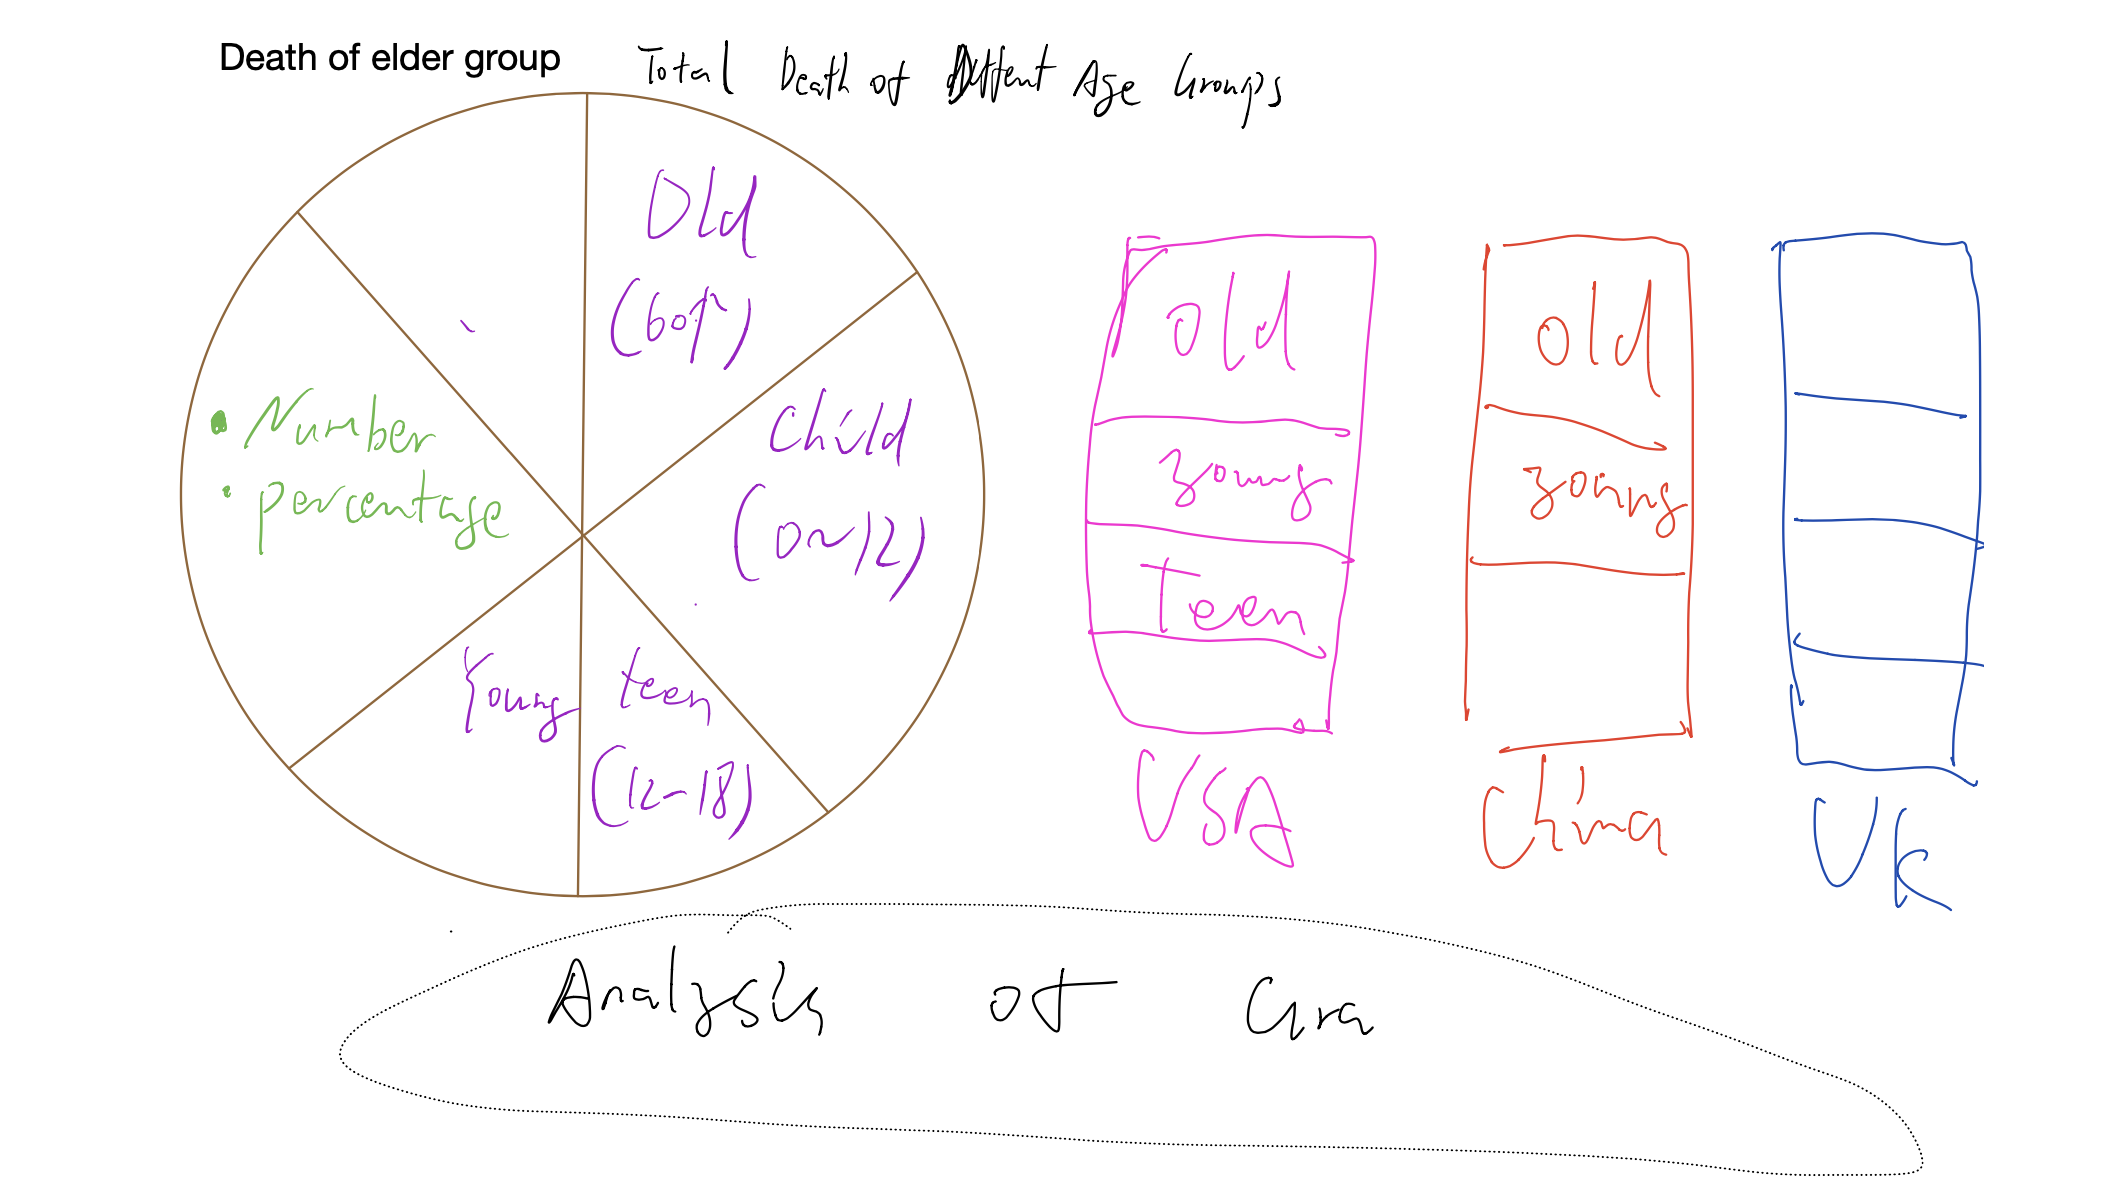 Death of elder group
Total Death of Different Age Groups
Old
(60↑)
Child
(0~12)
teen
(12-18)
Young
• Number
• percentage
old
young
Teen
USA
old
young
China
UK
Analysis of Gra